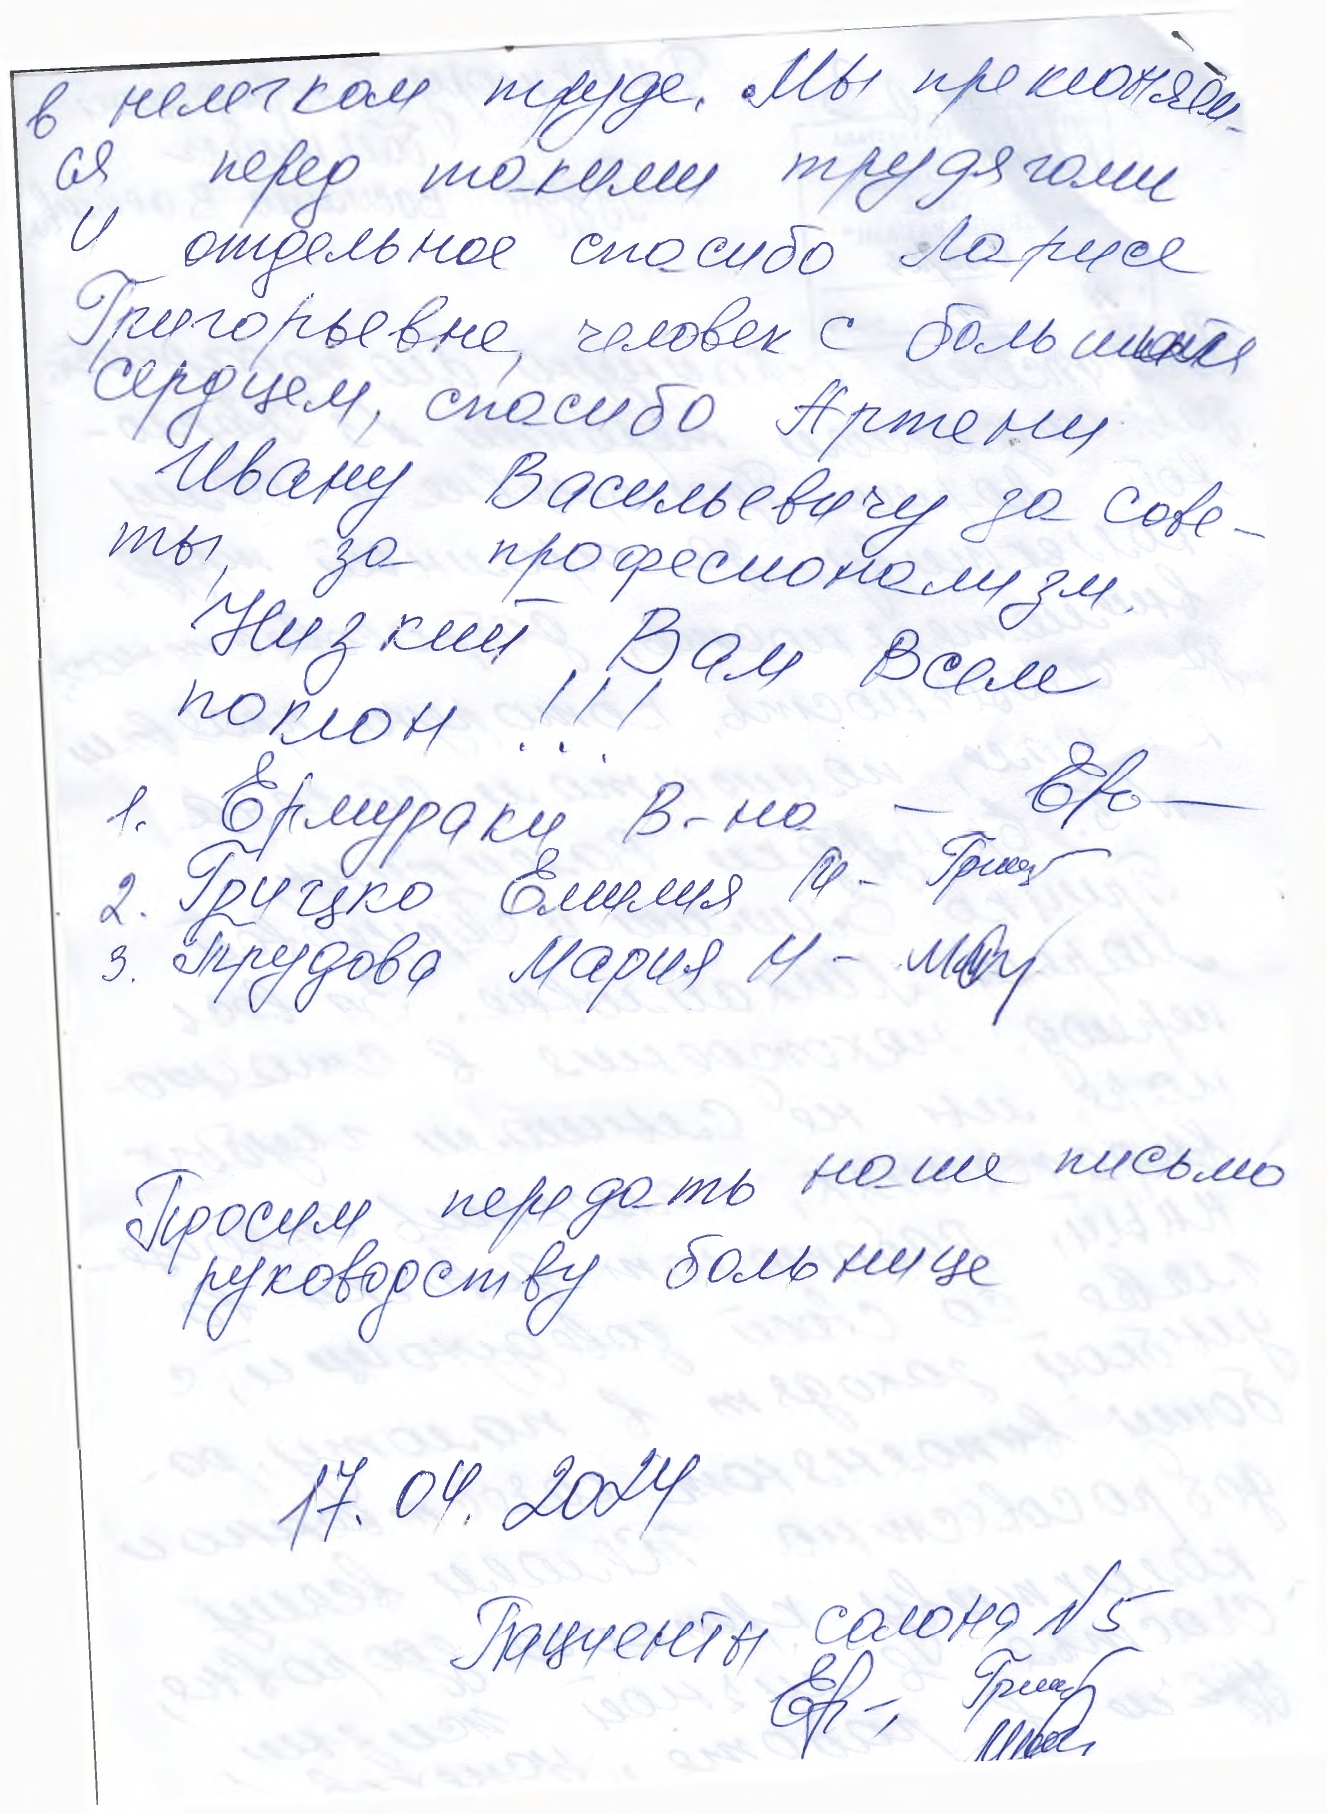 в нелегком труде. Мы преклоняем-
ся перед такими трудягами
и отдельное спасибо Ларисе
Григорьевне, человек с большим
сердцем, спасибо Артени
Ивану Васильевичу за сове-
ты, за професионализм.
Низкий Вам Всем
поклон !!!
1. Ермураки В-на -
2. Грицко Емилия И -
3. Трудова Мария И -
Просим передать наше письмо
руководству больнице
17. 04. 2024
Пациенты салона N 5